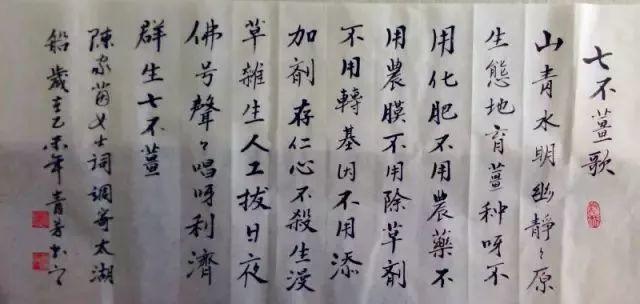 七不薑歌
山青水明幽靜々原
生態地育薑种呀不
用化肥不用農藥不
用農膜不用除草劑
不用轉基因不用添
加劑存仁心不殺生漫
草雜生人工拔日夜
佛号聲々唱呀利濟
群生七不薑
陳家茵女士詞調寄太湖
船歲在乙未年青芳书